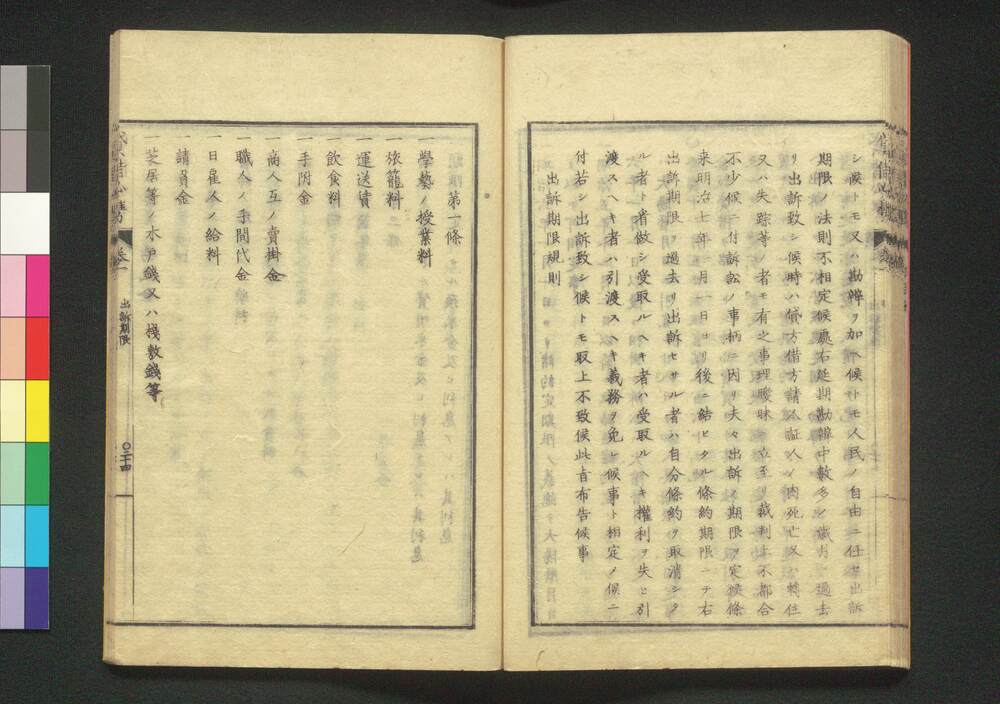 シ候トモ又ハ勘辨ヲ加ヘ候トモ人民ノ自由ニ任セ出訴
期限ノ法則不相定候處右延期勘辨中數多ノ歳月ヲ過去
リ出訴致シ候時ハ貸方借方請人証人ノ内死亡又ハ轉住
又ハ失踪等ノ者モ有之事理曖昧ニ立至リ裁判上不都合
不少候ニ付訴訟ノ事柄ニ因リ夫々出訴ノ期限ヲ定候條
來明治七年一月一日ヨリ後ニ結ヒタル條約期限ニテ右
出訴期限ヲ過去リ出訴セサル者ハ自分條約ヲ取消シタ
ル者ト看做シ受取ルヘキ者ハ受取ルヘキ權利ヲ失ヒ引
渡スヘキ者ハ引渡スヘキ義務ヲ免レ候事ト相定メ候ニ
付若シ出訴致シ候トモ取上不致候此旨布告候事
出訴期限規則
第一條
一學藝ノ授業料
一旅籠料
一運送賃
一飲食料
一手附金
一商人互ノ賣掛金
一職人ノ手間代金
一日雇人ノ給料
一請負金
一芝居等ノ木戸錢又ハ棧敷錢等
出訴期限
〇二十四